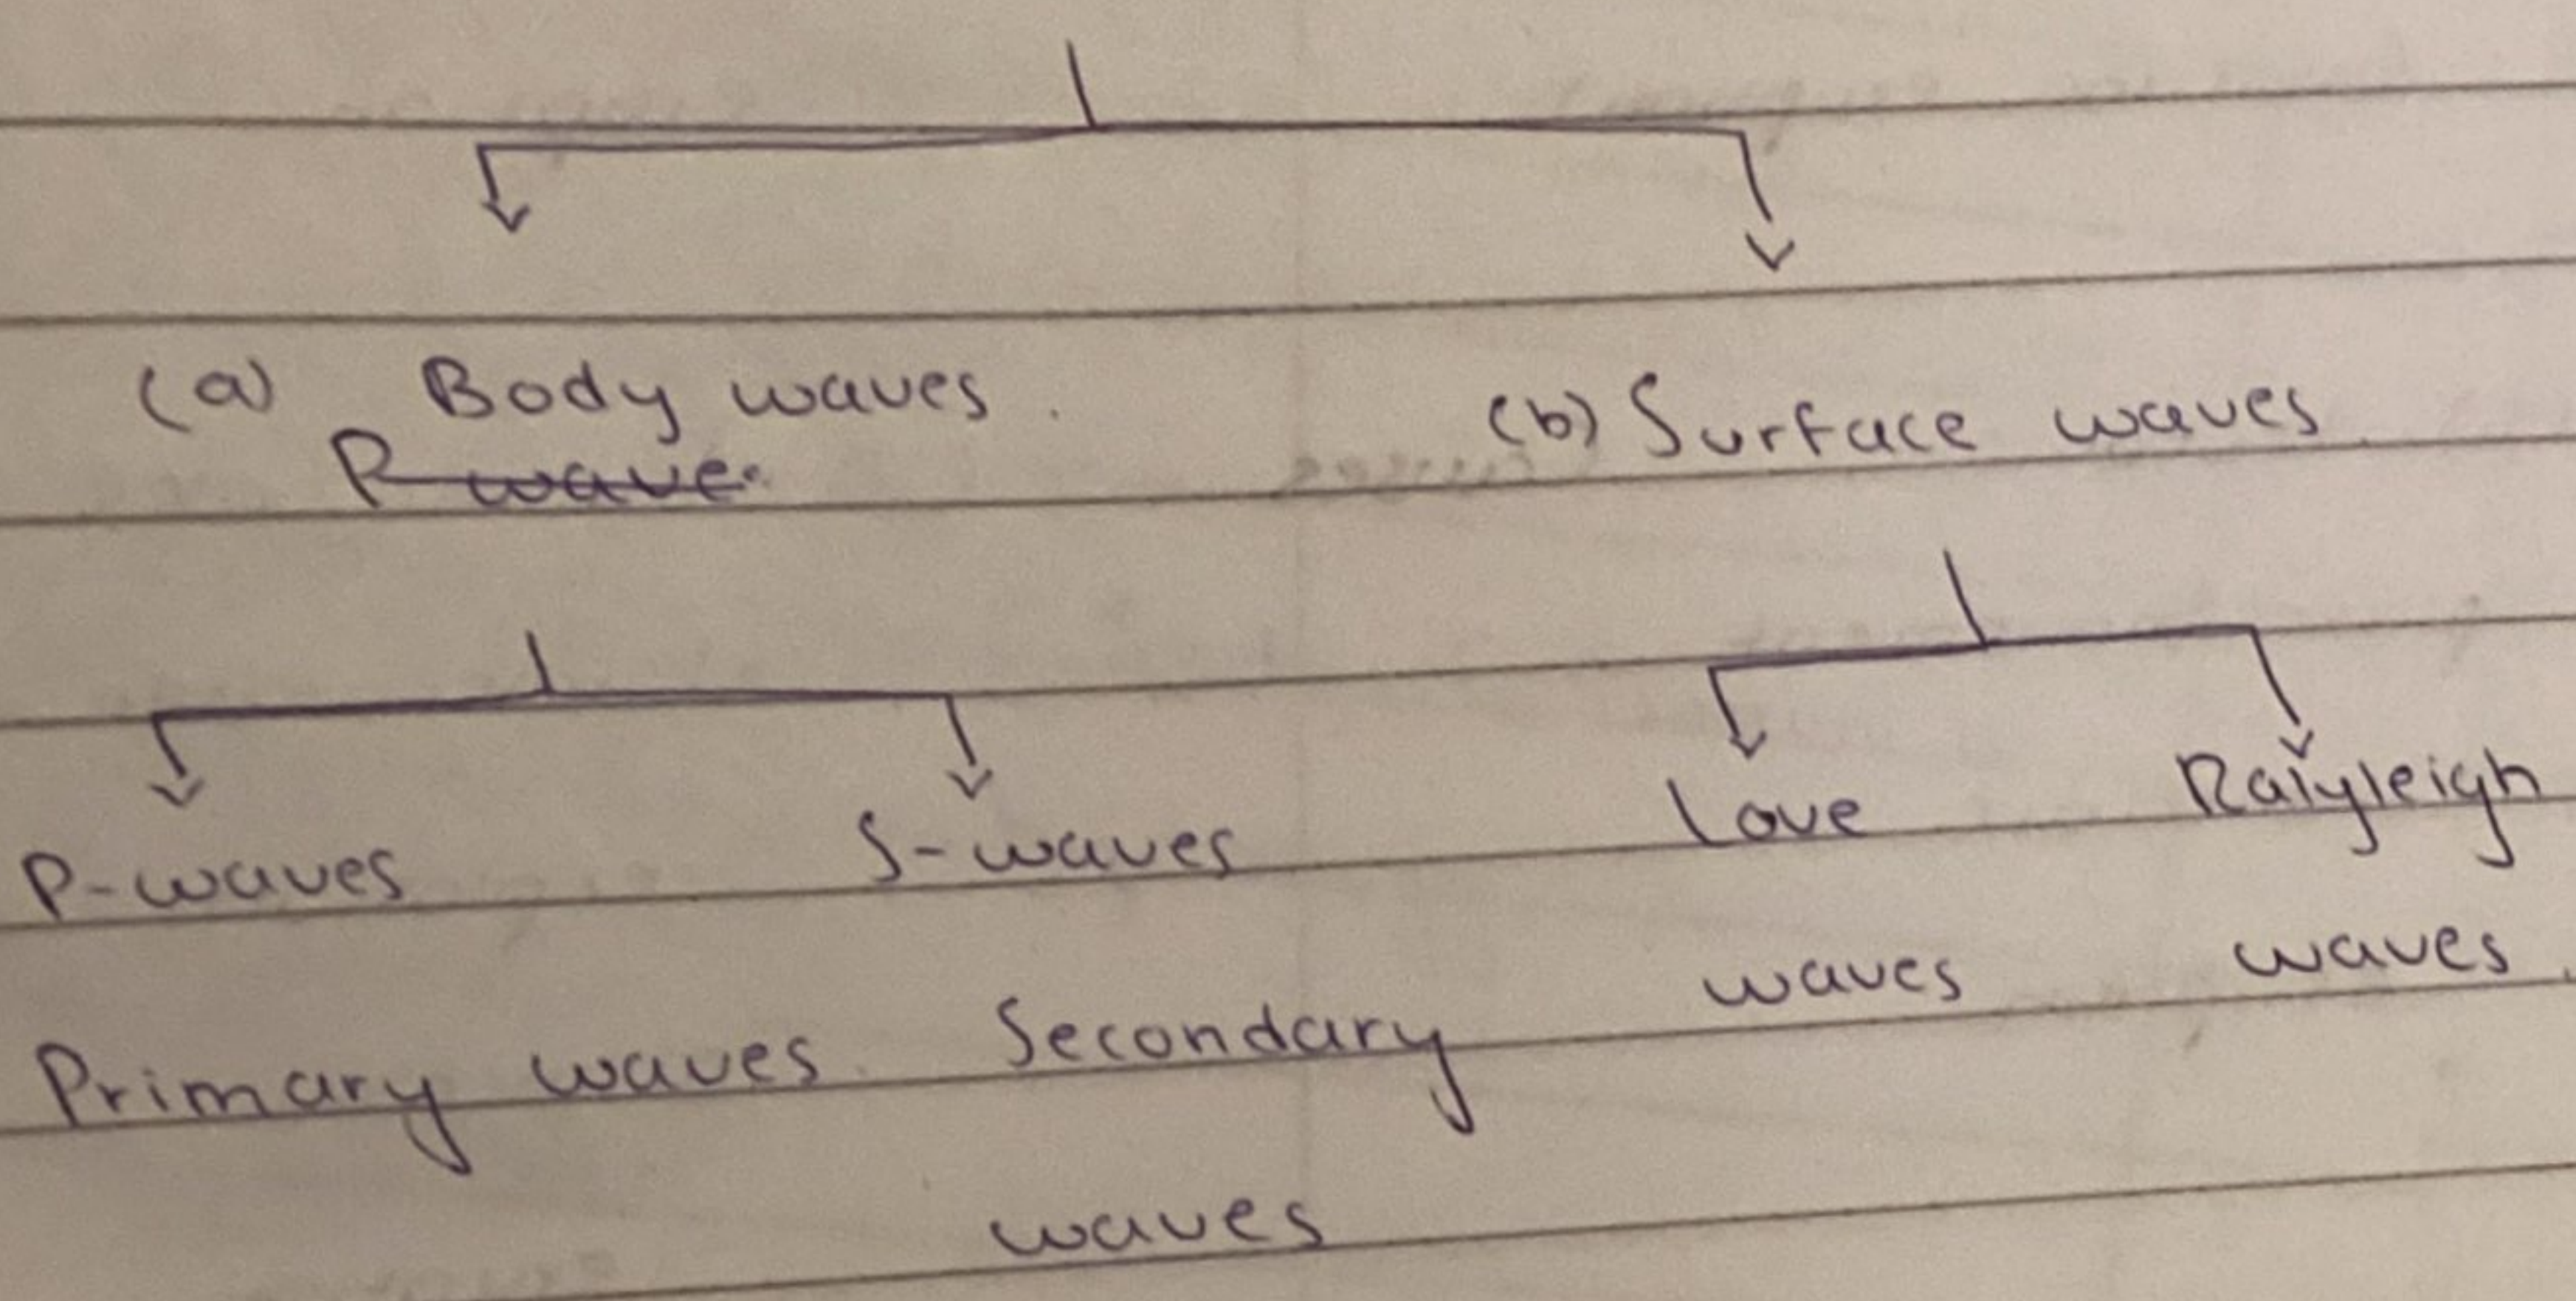 (a) Body waves.
P-wave
(b) Surface waves
P-waves
S-waves
Love
Raiyleigh
waves
waves.
Primary waves.
Secondary
waves